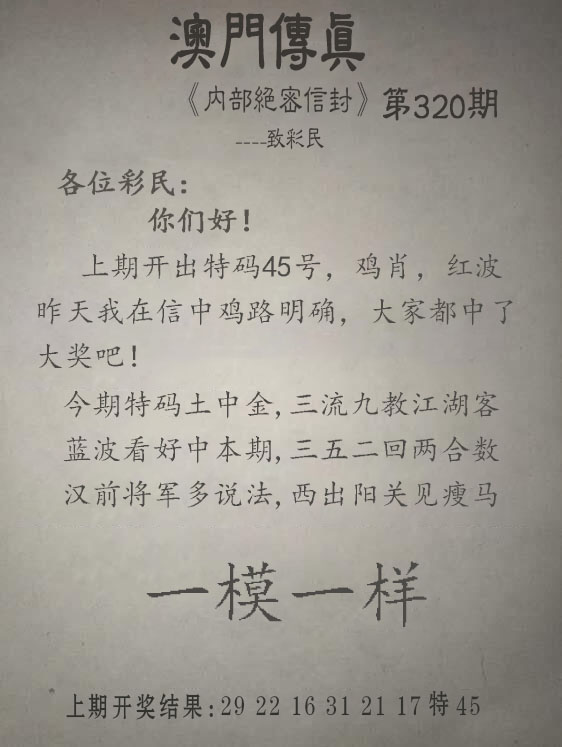 澳門傳真
《内部絕密信封》第320期
----致彩民
各位彩民：
你们好！
上期开出特码45号，鸡肖，红波
昨天我在信中鸡路明确，大家都中了
大奖吧！
今期特码土中金,三流九教江湖客
蓝波看好中本期,三五二回两合数
汉前将军多说法,西出阳关见瘦马
一模一样
上期开奖结果:29 22 16 31 21 17 特 45